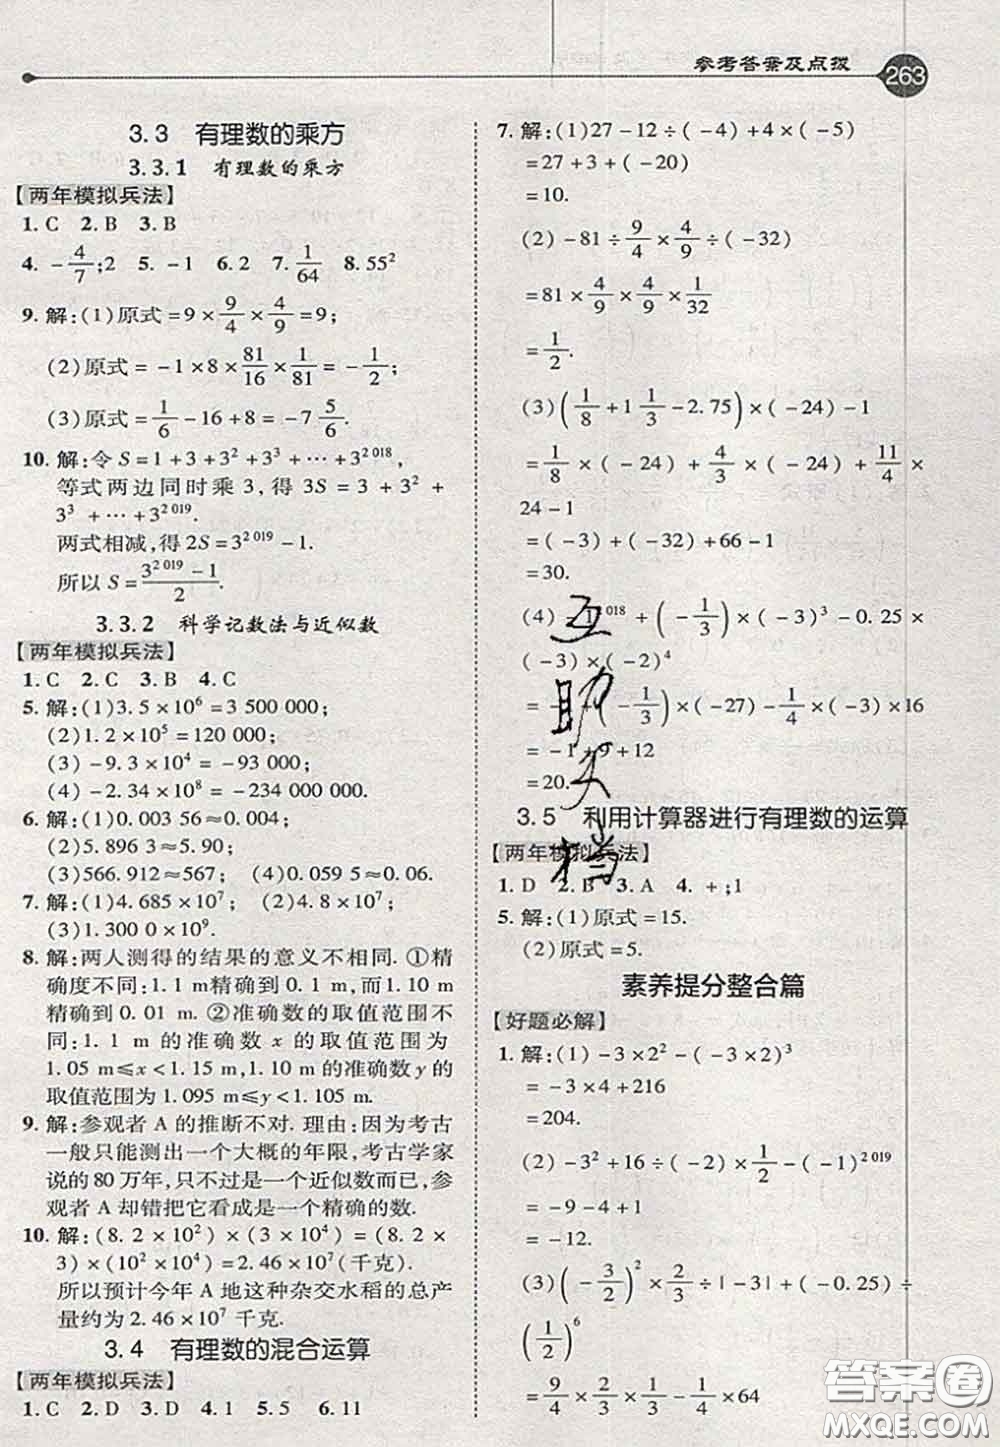 参考答案及点拨 263
3.3 有理数的乘方
3.3.1 有理数的乘方
【两年模拟兵法】
1. C 2. B 3. B
4. -4/7;2 5. -1 6. 2 7. 1/64 8. 55²
9. 解:(1)原式=9×9/4×4/9=9;
(2)原式=-1×8×81/16×1/81=-1/2;
(3)原式=1/6-16+8=-7 5/6.
10. 解:令 S=1+3+3²+3³+…+3^{2 018},
等式两边同时乘 3,得 3S=3+3²+
3³+…+3^{2 019}.
两式相减,得 2S=3^{2 019}-1.
所以 S=(3^{2 019}-1)/2.
3.3.2 科学记数法与近似数
【两年模拟兵法】
1. C 2. C 3. B 4. C
5. 解:(1)3.5×10⁶=3 500 000;
(2)1.2×10⁵=120 000;
(3)-9.3×10⁴=-93 000;
(4)-2.34×10⁸=-234 000 000.
6. 解:(1)0.003 56≈0.004;
(2)5.896 3≈5.90;
(3)566.912≈567; (4)0.059 5≈0.06.
7. 解:(1)4.685×10⁷; (2)4.8×10⁷;
(3)1.300×10⁹.
8. 解:两人测得的结果的意义不相同. ①精
确度不同:1.1 m精确到 0.1 m,而1.10 m
精确到 0.01 m. ②准确数的取值范围不
同:1.1 m 的准确数 x 的取值范围为
1.05 m≤x<1.15 m,1.10 m的准确数 y 的
取值范围为 1.095 m≤y<1.105 m.
9. 解:参观者 A 的推断不对. 理由:因为考古
一般只能测出一个大概的年限,考古学家
说的 80 万年,只不过是一个近似数而已,参
观者 A 却错把它看成是一个精确的数.
10. 解:(8.2×10²)×(3×10⁴)=(8.2×
3)×(10²×10⁴)=2.46×10⁷(千克).
所以预计今年 A 地这种杂交水稻的总产
量约为 2.46×10⁷ 千克.
3.4 有理数的混合运算
【两年模拟兵法】
1. C 2. D 3. D 4. 1 5. 5 6. 11
7. 解:(1)27-12÷(-4)+4×(-5)
=27+3+(-20)
=10.
(2)-81÷9/4×4/9÷(-32)
=81×4/9×4/9×1/32
=1/2.
(3)(1/8+1 1/3-2.75)×(-24)-1
=1/8×(-24)+4/3×(-24)+11/4×
24-1
=(-3)+(-32)+66-1
=30.
(4) 018+(-1/3)×(-3)³-0.25×
(-3)×(-2)⁴
+(-1/3)×(-27)-1/4×(-3)×16
=-1+9+12
=20.
3.5 利用计算器进行有理数的运算
【两年模拟兵法】
1. D 2. B 3. A 4. +;1
5. 解:(1)原式=15.
(2)原式=5.
素养提分整合篇
【好题必解】
1. 解:(1)-3×2²-(-3×2)³
=-3×4+216
=204.
(2)-3²+16÷(-2)×1/2-(-1)^{2 019}
=-9-4+1
=-12.
(3)(-3/2)²×2/3÷|-3|+(-0.25)÷
(1/2)⁶
=9/4×2/3×1/3-1/4×64
互助文档
答案圈
MXQE.COM